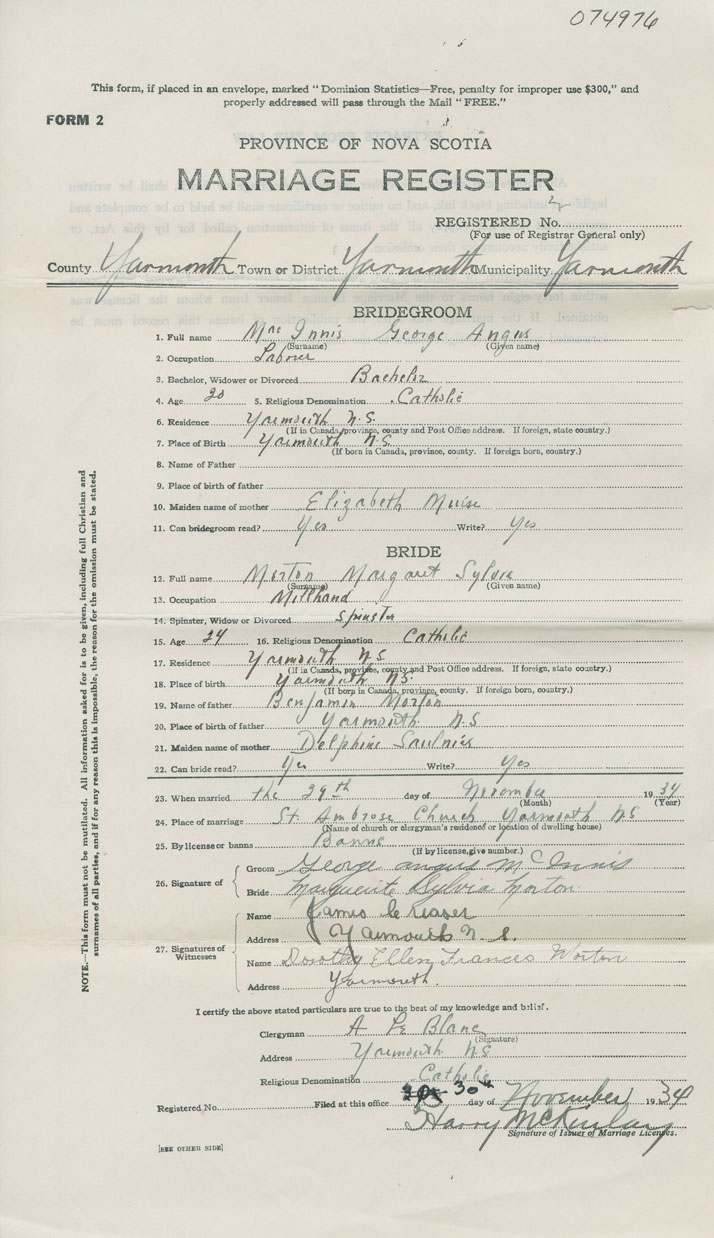 074976
This form, if placed in an envelope, marked "Dominion Statistics—Free, penalty for improper use $300," and
properly addressed will pass through the Mail "FREE."
FORM 2
PROVINCE OF NOVA SCOTIA
MARRIAGE REGISTER
REGISTERED No.
(For use of Registrar General only)
County Yarmouth Town or District Yarmouth Municipality Yarmouth
BRIDEGROOM
1. Full name Mac Innis George Angus
(Surname) (Given name)
2. Occupation Laborer
3. Bachelor, Widower or Divorced Bachelor
4. Age 20 5. Religious Denomination Catholic
6. Residence Yarmouth N.S.
(If in Canada, province, county and Post Office address. If foreign, state country.)
7. Place of Birth Yarmouth N.S.
(If born in Canada, province, county. If foreign born, country.)
8. Name of Father
9. Place of birth of father
10. Maiden name of mother Elizabeth Muise
11. Can bridegroom read? Yes Write? Yes
BRIDE
12. Full name Morton Margaret Sylvia
(Surname) (Given name)
13. Occupation Millhand
14. Spinster, Widow or Divorced Spinster
15. Age 24 16. Religious Denomination Catholic
17. Residence Yarmouth N.S.
(If in Canada, province, county and Post Office address. If foreign, state country.)
18. Place of birth Yarmouth N.S.
(If born in Canada, province, county. If foreign born, country.)
19. Name of father Benjamin Morton
20. Place of birth of father Yarmouth N.S
21. Maiden name of mother Delphine Saulnier
22. Can bride read? Yes Write? Yes
23. When married the 29th day of November 1934
(Month) (Year)
24. Place of marriage St. Ambrose Church Yarmouth N.S
(Name of church or clergyman's residence or location of dwelling house)
25. By license or banns Banns
(If by license, give number.)
26. Signature of
Groom George angus McInnis
Bride Marguerite Sylvia Morton
27. Signatures of Witnesses
Name James
Address Yarmouth N.S.
Name Dorothy Ellen Frances Morton
Address Yarmouth.
I certify the above stated particulars are true to the best of my knowledge and belief.
Clergyman A Le Blanc
(Signature)
Address Yarmouth N.S
Religious Denomination Catholic
Registered No. Filed at this office 30th day of November 1934
Harry McKinlay
Signature of Issuer of Marriage Licenses.
[SEE OTHER SIDE]
NOTE.—This form must not be mutilated. All information asked for is to be given, including full Christian and
surnames of all parties, and if for any reason this is impossible, the reason for the omission must be stated.